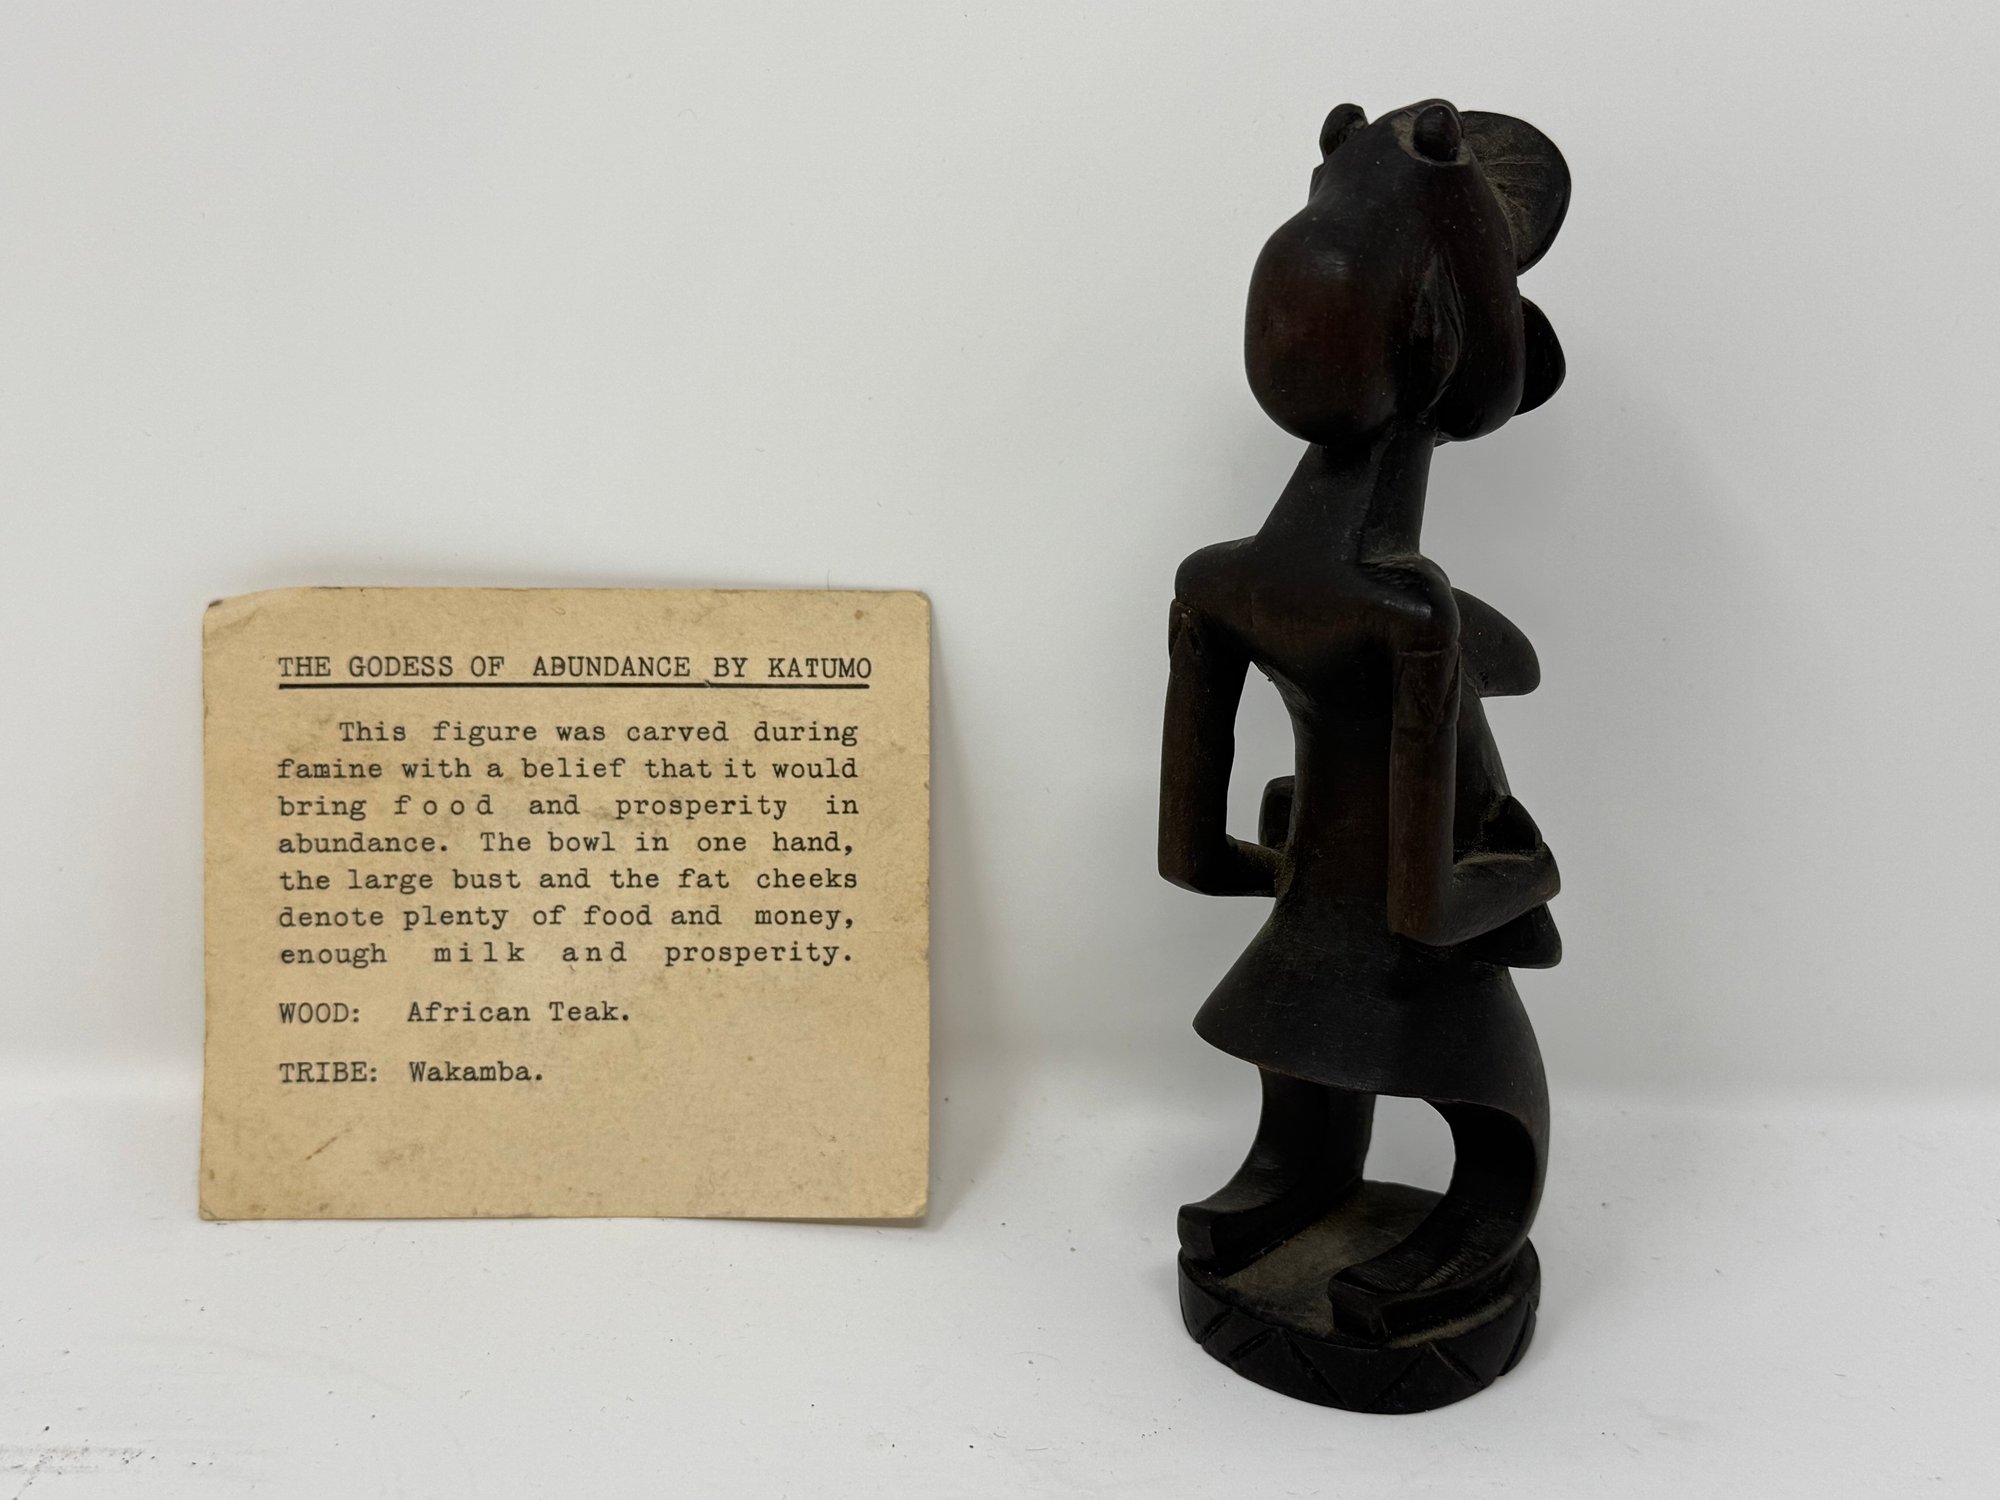 THE GODESS OF ABUNDANCE BY KATUMO
This figure was carved during
famine with a belief that it would
bring food and prosperity in
abundance. The bowl in one hand,
the large bust and the fat cheeks
denote plenty of food and money,
enough milk and prosperity.
WOOD: African Teak.
TRIBE: Wakamba.